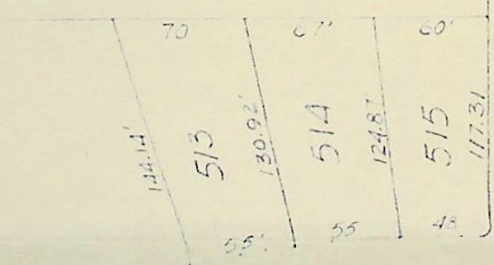 70 67' 60'
144.14' 513 130.92' 514 124.87' 515 117.31
55' 55 48